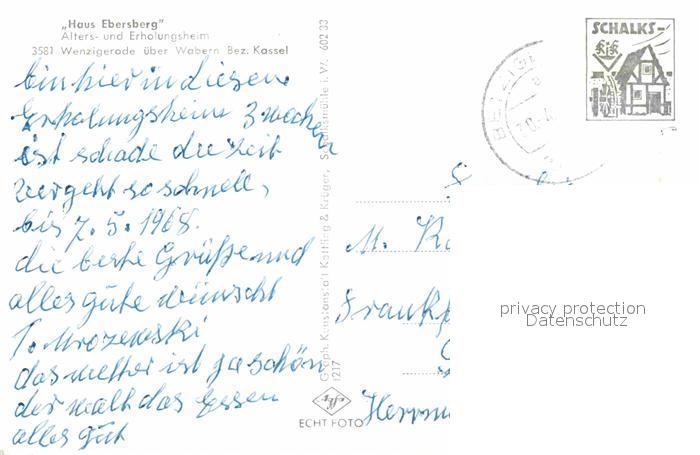 „Haus Ebersberg"
Alters- und Erholungsheim
3581 Wenzigerode über Wabern Bez. Kassel
bin hier in diesen
Erholungsheim 3 wochen
ist schade die zeit
vergeht so schnell,
bis 7. 5. 1968.
die beste Grüße und
alles gute wünscht
T. Mrozewski
das wetter ist ja schön
der walt das Essen
alles gut
Graph. Kunstanstalt Kettling & Krüger, Schalksmühle i. W. 602 33
1217
ECHT FOTO
SCHALKS-
KiK
M.
Frankf
Herrm
privacy protection
Datenschutz